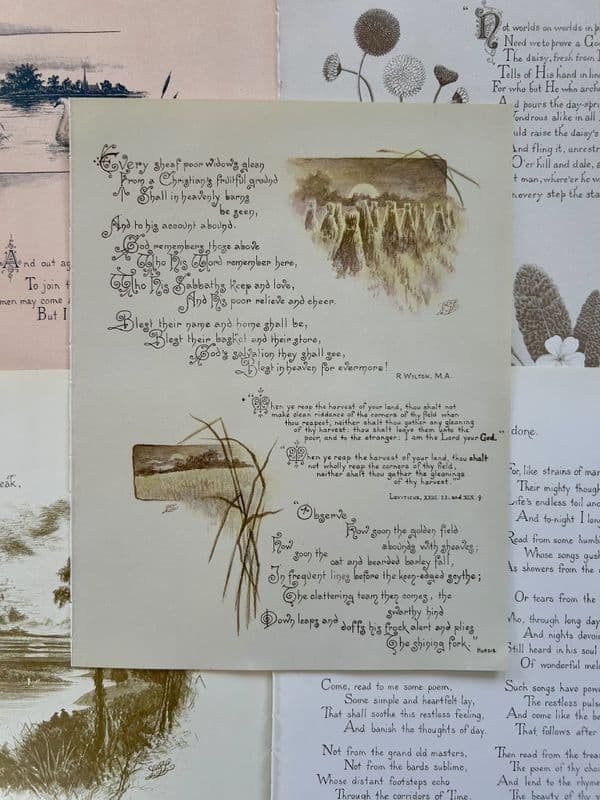 Every sheaf poor widows glean
From a Christian's fruitful ground
Shall in heavenly barns
be seen,
And to his account abound.
God remembers those above
Who His Word remember here,
Who His Sabbaths keep and love,
And His poor relieve and cheer.
Blest their name and home shall be,
Blest their basket and their store,
God's salvation they shall see,
Blest in heaven for evermore!
R. WILTON. M.A.
"When ye reap the harvest of your land, thou shalt not
make clean riddance of the corners of thy field when
thou reapest, neither shalt thou gather any gleaning
of thy harvest: thou shalt leave them unto the
poor, and to the stranger: I am the Lord your God."
"When ye reap the harvest of your land, thou shalt
not wholly reap the corners of thy field,
neither shalt thou gather the gleanings
of thy harvest."
LEVITICUS, XXIII. 22. and XIX. 9
"Observe
How soon the golden field
abounds with sheaves;
How
soon the oat and bearded barley fall,
In frequent lines before the keen-edged scythe;
The clattering team then comes, the
swarthy hind
Down leaps and doffs his frock alert and plies
The shining fork."
HURDIS.
"Not worlds on worlds in p
Need we to prove a Go
The daisy, fresh from
Tells of His hand in
For who but He who arch
And pours the day-spr
Wondrous alike in all
uld raise the daisy's
And fling it, unrestr
O'er hill and dale, a
t man, where'er he w
n every step the sta
And out ag
To join t
men may come
But I
eak,
done.
For, like strains of mar
Their mighty though
Life's endless toil and
And to-night I long
Read from some humb
Whose songs gush
As showers from the
Or tears from the
Who, through long day
And nights devoi
Still heard in his soul
Of wonderful melo
Come, read to me some poem,
Some simple and heartfelt lay,
That shall soothe this restless feeling,
And banish the thoughts of day.
Not from the grand old masters,
Not from the bards sublime,
Whose distant footsteps echo
Through the corridors of Time.
Such songs have pow
The restless puls
And come like the be
That follows after
Then read from the trea
The poem of thy cho
And lend to the rhyme
The beauty of thy v